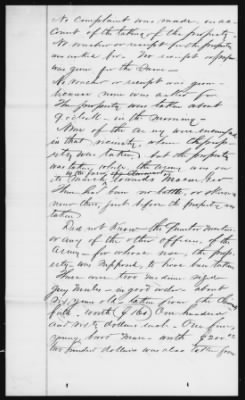 No complaint was made, on ac-
count of the taking of the property.
No voucher or receipt for the property
was asked for. No receipt
was given for the same -
No voucher or receipt was given -
because none was asked for.
The property was taken about
9 o'clock - in the morning -
None of the army were encamped
in that vicinity when the prop-
erty was taken, but the property
was taken while the army was
its March towards Macon Geo.
There had been no battle, or skirmish
near there, just before the property was
taken.
Did not know the Quarter master
or any of the other officers of the
Army - for whose use, the prop-
erty was supposed to have been taken
There were two medium
grey mules - in good order - about
six years old - taken from the
worth ($160) One hundred
and sixty dollars each - One fine,
young mare - worth $200.00
two hundred dollars was also taken from